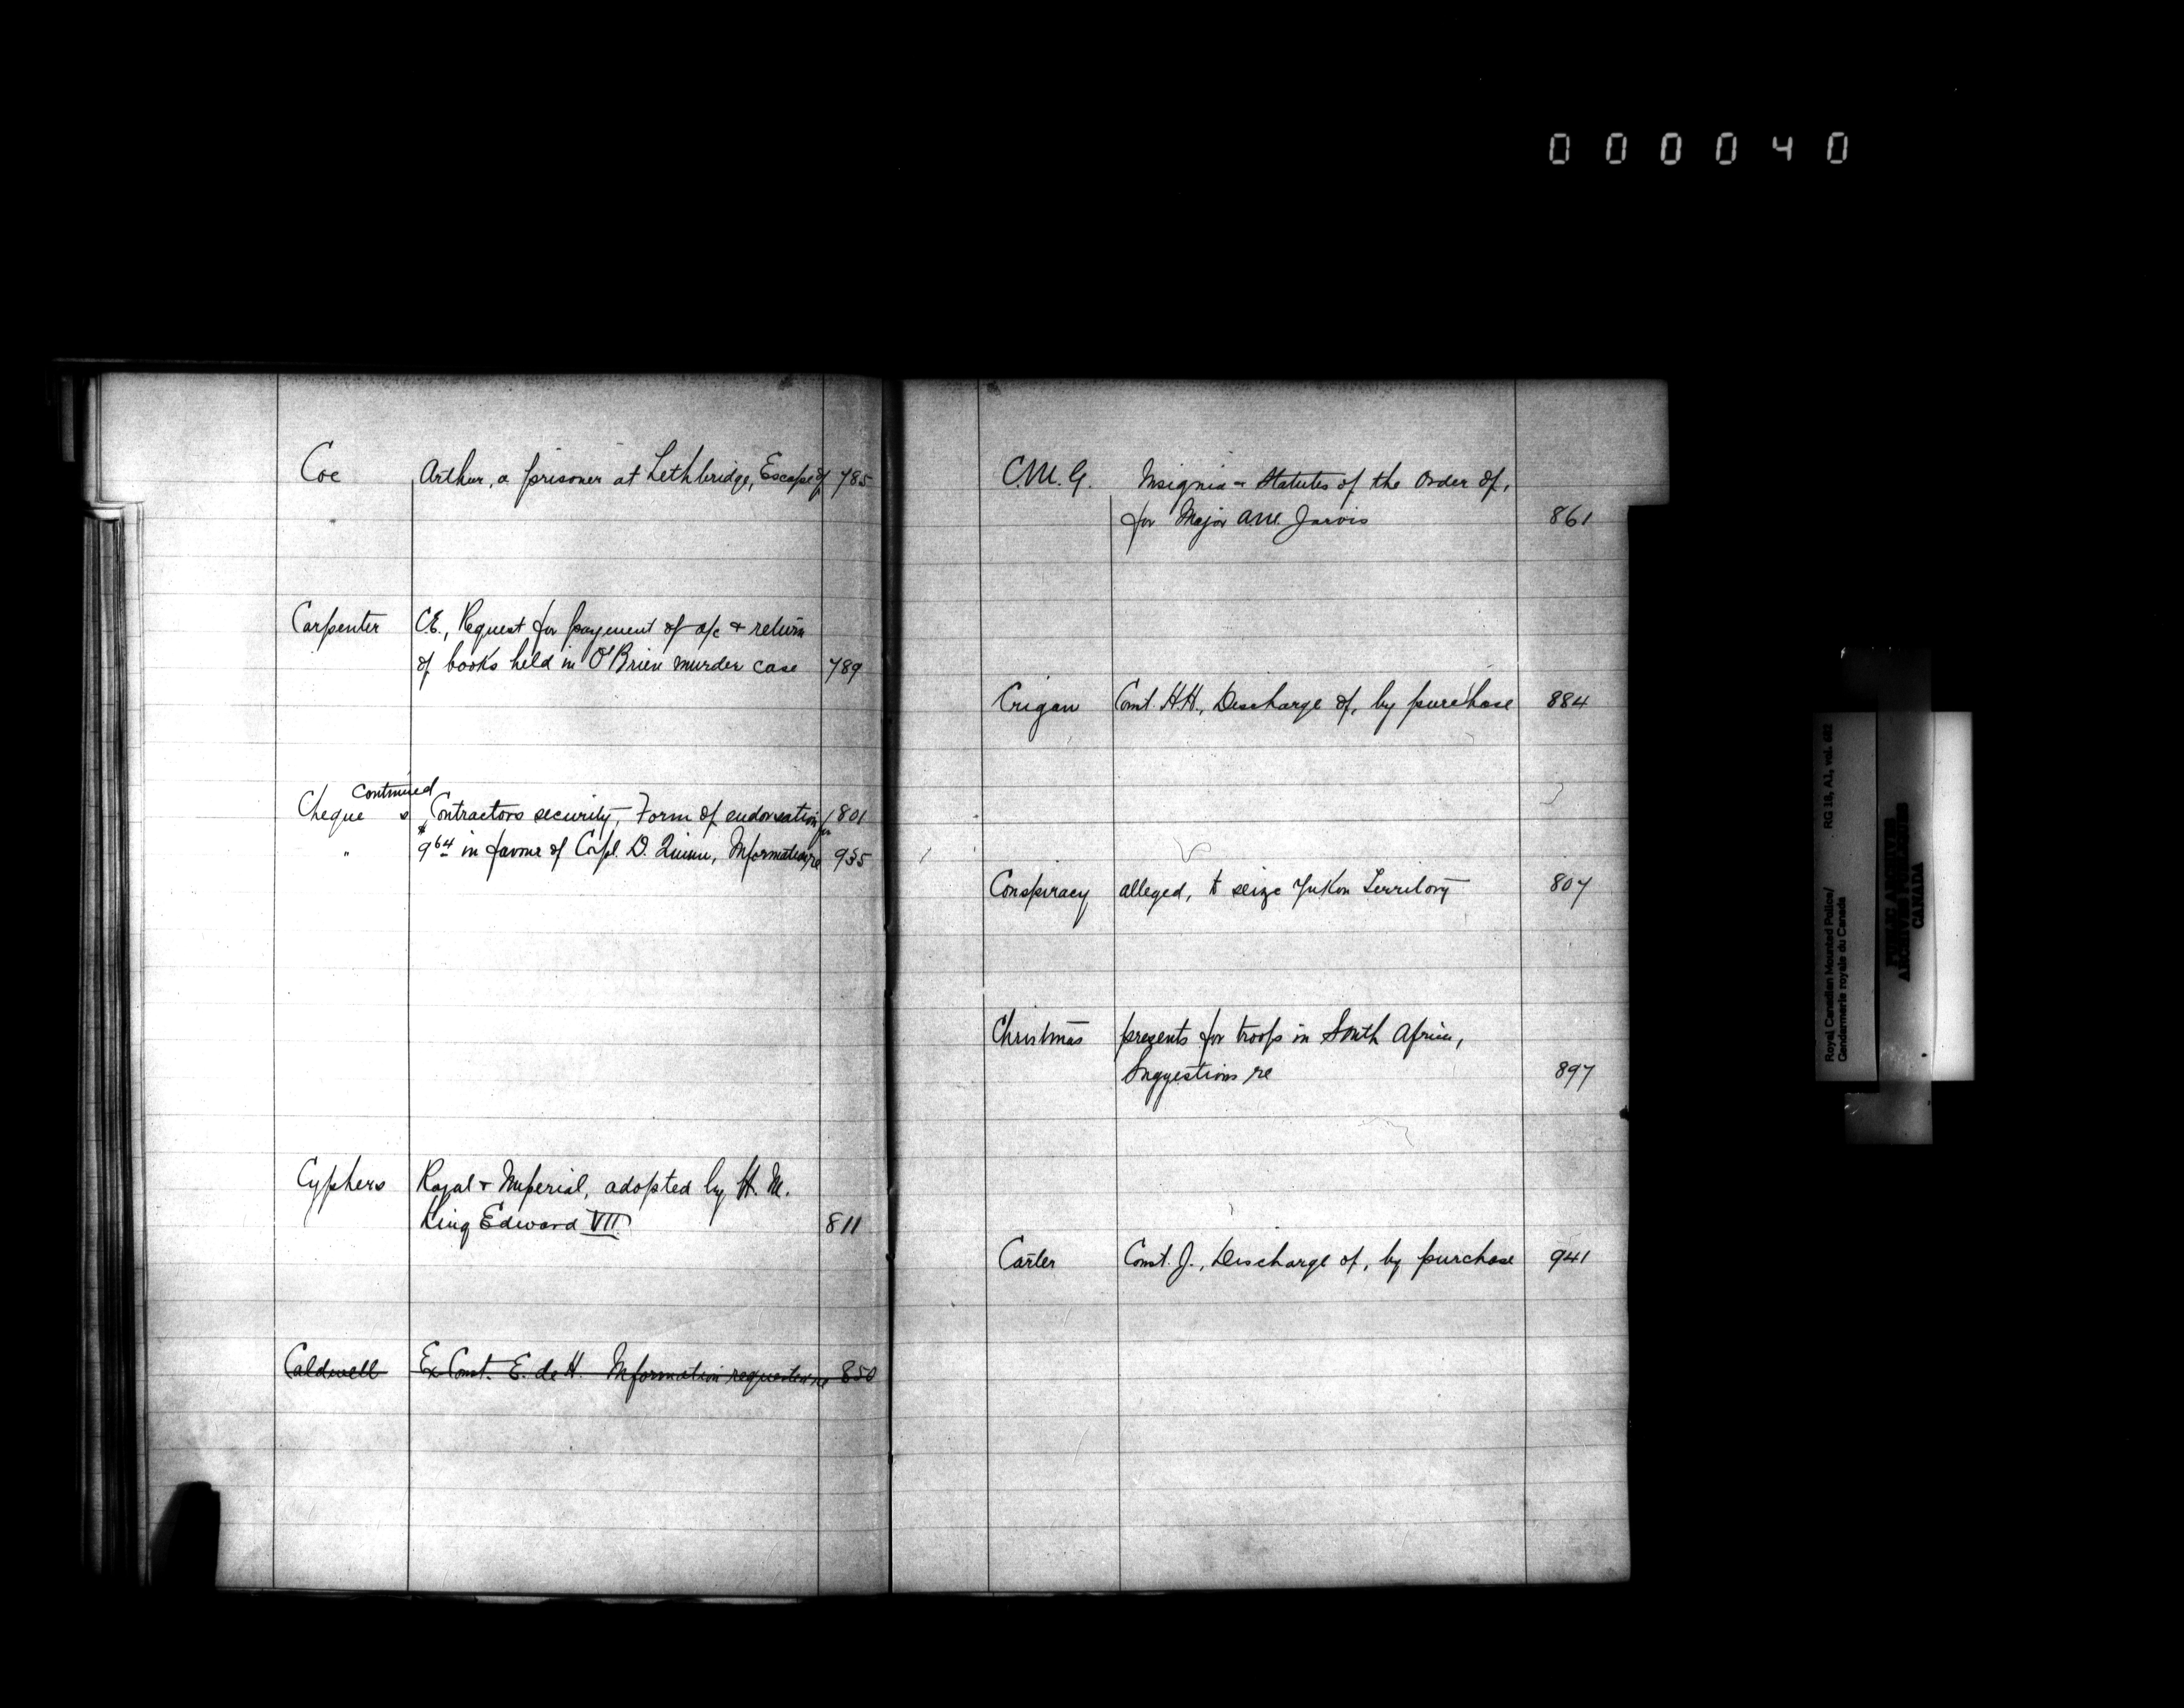 000040
Coe Arthur, a prisoner at Lethbridge, Escape of 785
Carpenter C.E., Request for payment of a/c & return
of books held in O'Brien murder case 789
continued
Cheques Contractors security, Form of endorsation for 801
" $9.64 in favour of Corpl. D. Quinn, Information re 935
Cyphers Royal & Imperial, adopted by H. M.
King Edward VII 811
Caldwell Ex Const. E. de H. Information requested re 850
C.M.G. Insignia & Statutes of the Order of,
for Major A.M. Jarvis 861
Crigan Const. H.H., Discharge of, by purchase 884
Conspiracy alleged, to seize Yukon Territory 807
Christmas presents for troops in South Africa,
Suggestions re 897
Carter Const. J., Discharge of, by purchase 941
Royal Canadian Mounted Police/
Gendarmerie royale du Canada
RG 18, A1, vol.
PUBLIC ARCHIVES
ARCHIVES PUBLIQUES
CANADA